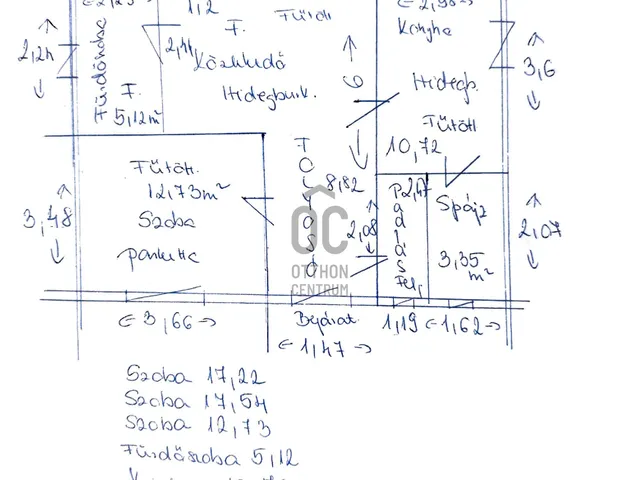 1,2
Fűtött
F.
2,44
Közlekedő
Hidegburk.
6
2,24
Fürdőszoba
F.
5,12 m²
Konyha
Hidegb.
Fűtött
10,72
3,6
Fűtött.
12,73 m²
Szoba
parketta
3,48
3,66
TOLYOSÓ
8,82
2,08
Padlás
Felj.
2,47
Spájz
3,35
m²
2,07
OC
OTTHON
CENTRUM
Bejárat.
1,47
1,19
1,62
Szoba 17,22
Szoba 17,54
Szoba 12,73
Fürdőszoba 5,12